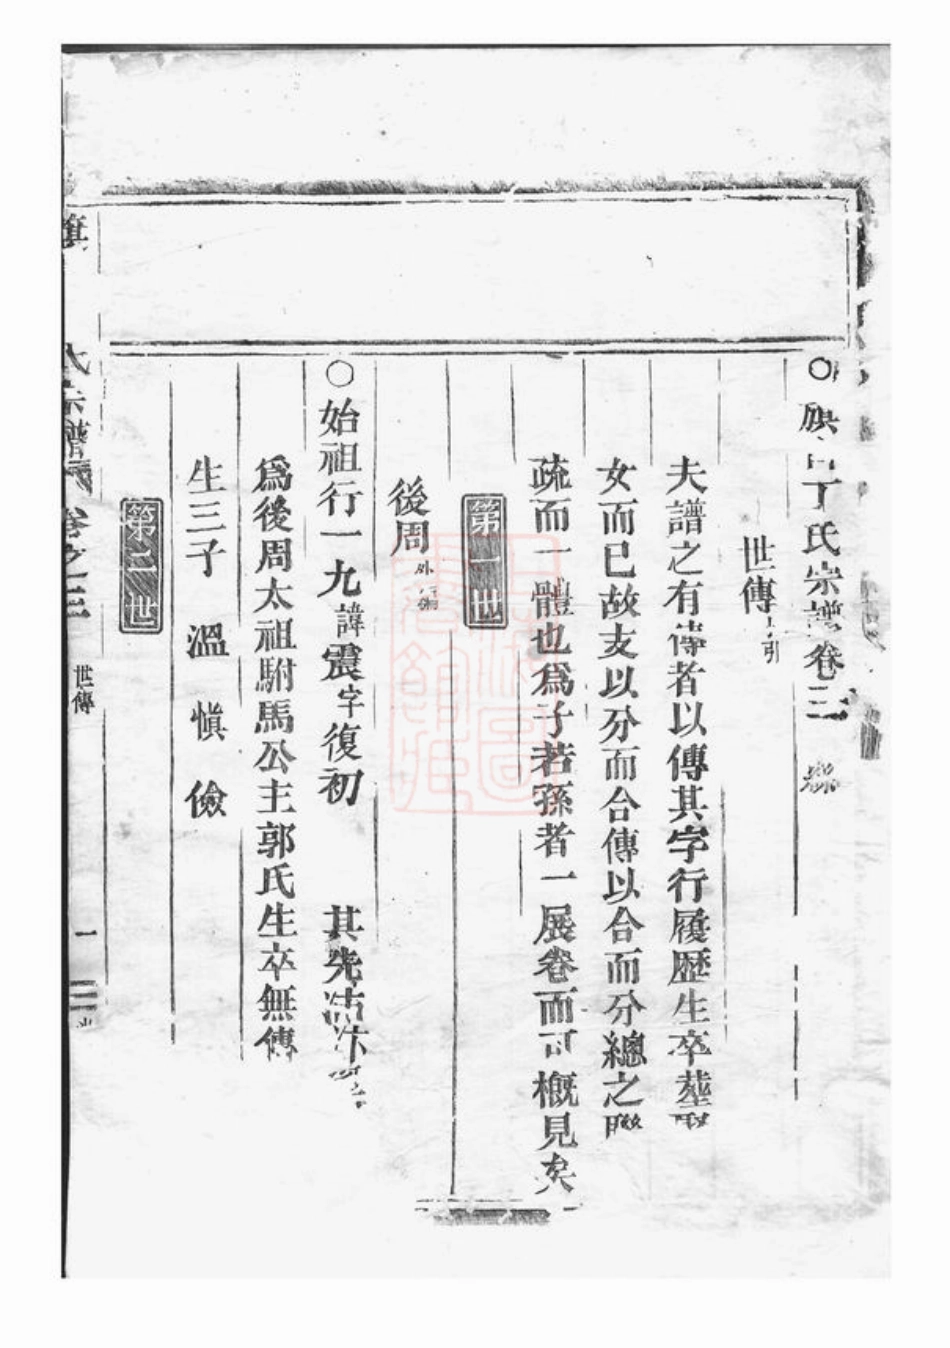 ○旗口丁氏宗譜卷三
世傳引
夫譜之有傳者以傳其字行履歷生卒塟娶
女而已故支以分而合傳以合而分總之聯
疏而一體也爲子若孫者一展卷而可槪見矣
第一世
後周
○始祖行一九諱震字復初 其先
爲後周太祖駙馬公主郭氏生卒無傳
生三子 溫 愼 儉
第二世
旗 氏宗譜 卷之三 世傳 一